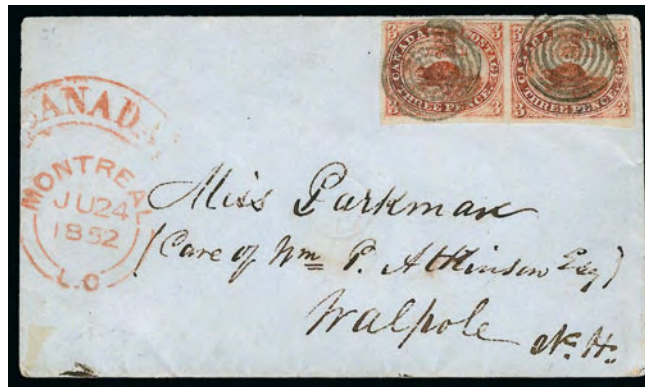 3 3
CANADA POSTAGE
THREE PENCE
3 3
3 3
CANADA POSTAGE
THREE PENCE
3 3
CANADA
MONTREAL
JU 24
1852
L.C
Miss Parkman
(Care of Wm P. Atkinson Esq)
Walpole
N. H.